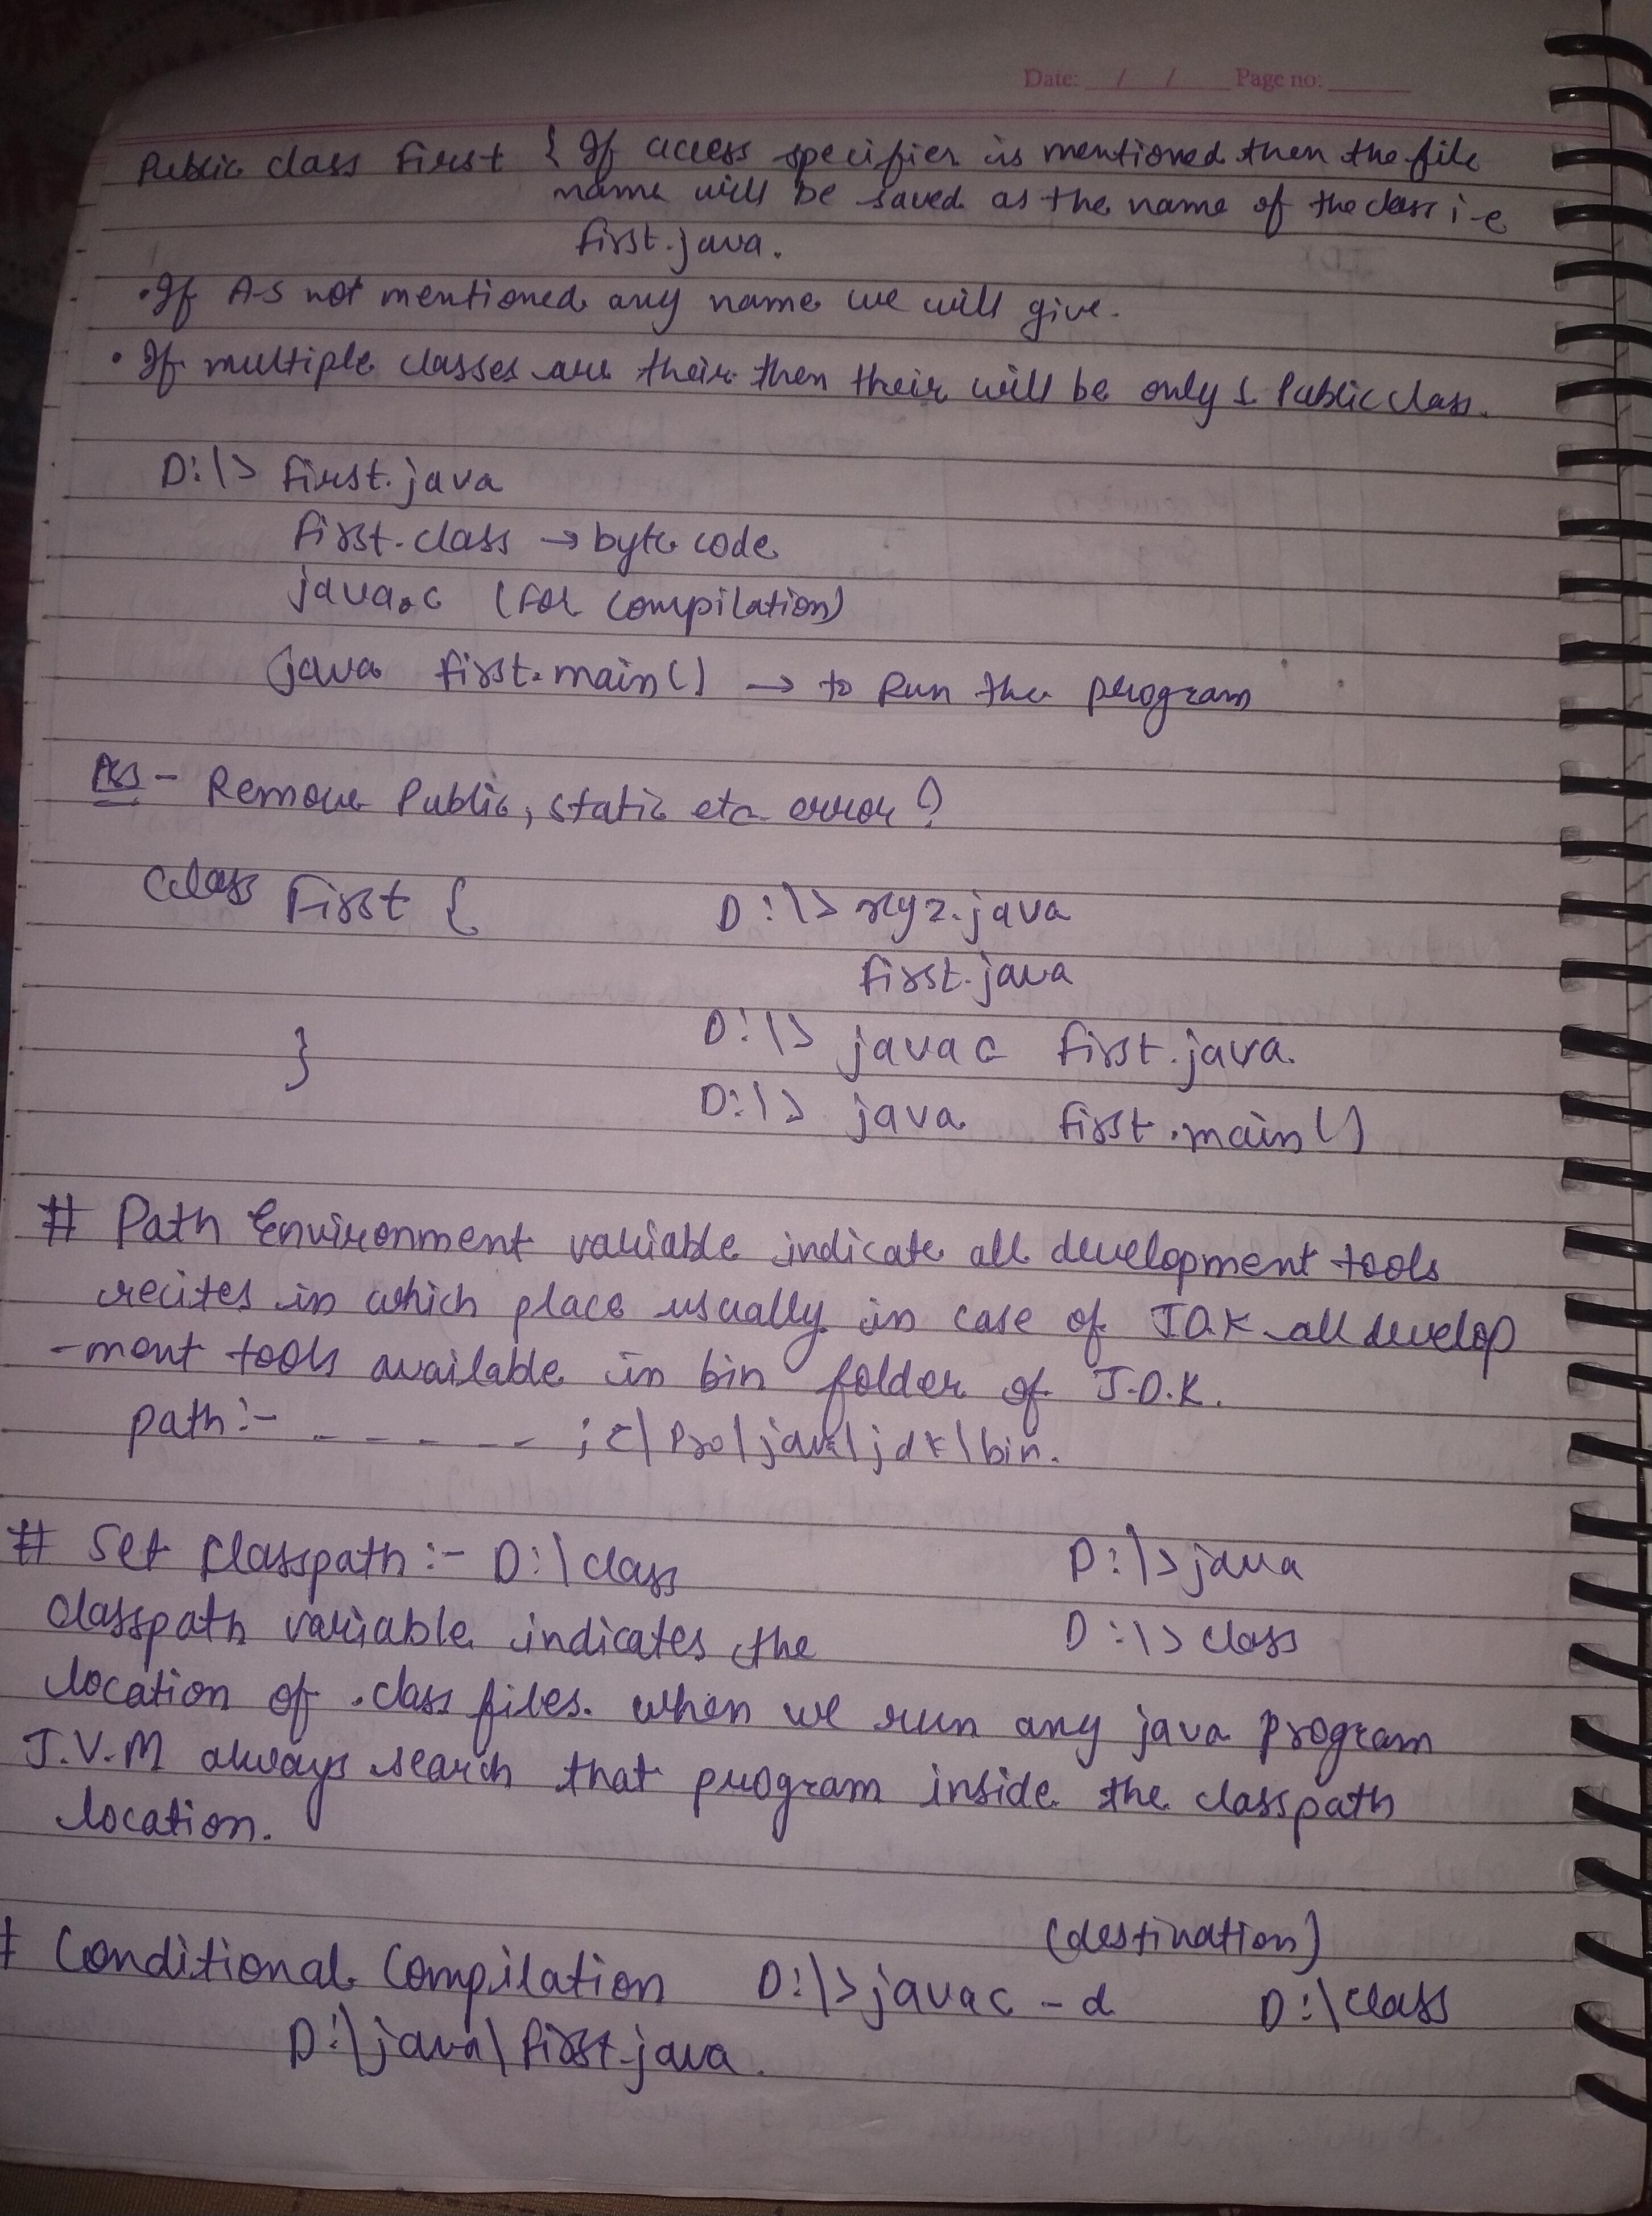 Date: / / Page no:
Public class First { If access specifier is mentioned then the file
name will be saved as the name of the class i-e
First.java.
• If A-S not mentioned any name we will give.
• If multiple classes are their then their will be only 1 Public class.
D:\> First.java
First.class → byte code
java.c (For compilation)
java First.main() → to Run the program
Ass - Remove Public, static etc error?
Class First { D:\> xyz.java
First.java
} D:\> javac First.java.
D:\> java First.main()
# Path Environment variable indicate all development tools
recites in which place usually in case of J.D.K all develop
-ment tools available in bin folder of J.D.K.
path:- - - - - - - ; c\ Pro\java\jdk\bin.
# Set Classpath:- D:\class D:\>java
Classpath variable indicates the D:\> class
location of .class files. when we run any java program
J.V.M always search that program inside the classpath
location.
(destination)
# Conditional Compilation D:\>javac -d D:\class
D:\java\First.java.